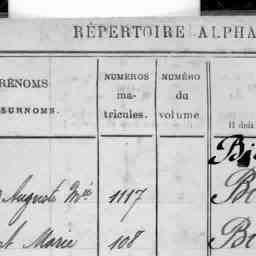 RÉPERTOIRE ALPHA
RÉNOMS
SURNOMS.
NUMÉROS
ma-
tricules.
NUMÉRO
du
volume.
Il doit
Auguste Mie 1117
Marie 108